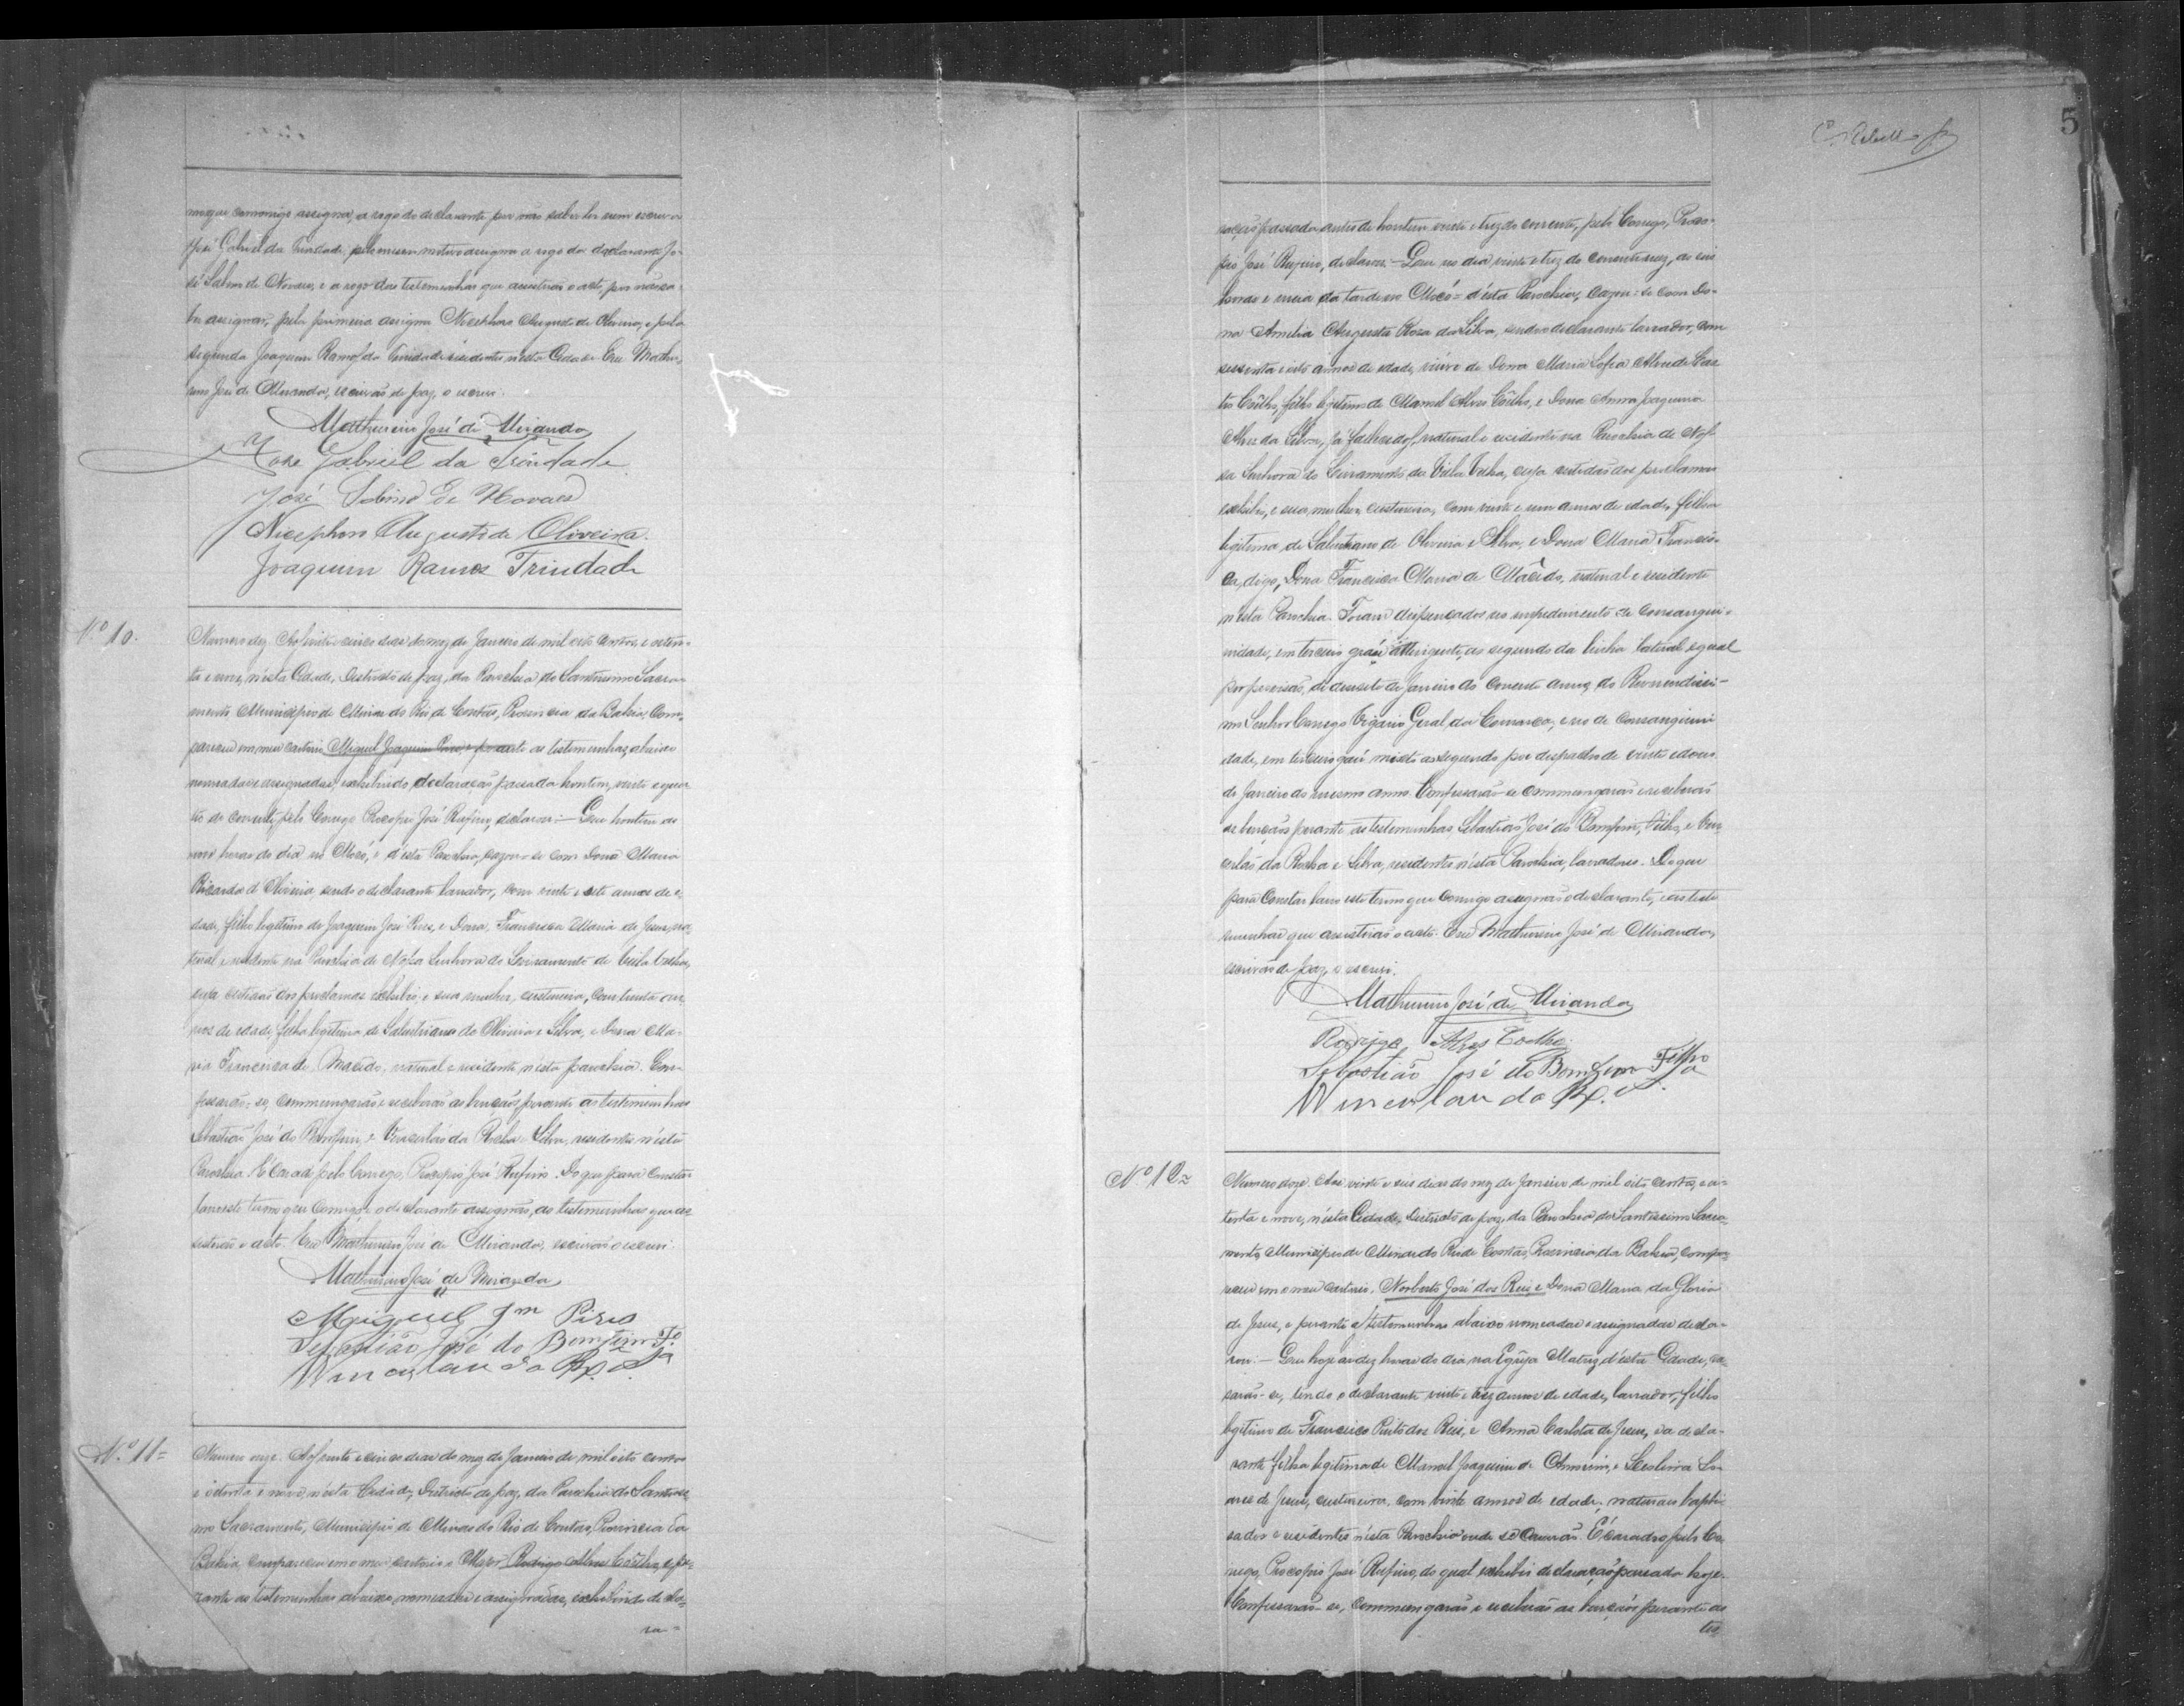 5
C. Rebello Jr
mo que commigo assigna, a rogo do declarante por não saber ler nem escrever
José Gabriel da Trindade, pelo mesmo motivo assigna a rogo da declarante Jo-
sé Sabino de Novaes, e a rogo das testemunhas que assistirão o acto, por não sa-
ber assignar, pela primeira assigna Nicephoro Augusto de Oliveira, e pela
segunda Joaquim Ramos da Trindade residentes nesta Cidade. Eu Mathu-
rino José de Miranda, escrivão de paz, o escrevi.
Mathurino José de Miranda
José Gabriel da Trindade
José Sabino de Novaes
Nicephoro Augusto de Oliveira.
Joaquim Ramos Trindade
Nº 10.
Numero dez. Aos vinte cinco dias do mez de Janeiro de mil oito centos, e oiten-
ta e nove, n'esta Cidade, Districto de paz, da Parochia do Santissimo Sacra-
mento Municipio de Minas do Rio de Contas, Provincia da Bahia, com-
pareceu em meu cartorio Miguel Joaquim Pires, e perante as testemunhas, abaixo
nomeadas e assignadas, exhibindo declaração passada hontem, vinte e qua-
tro do corrente, pelo Conego Procopio José Rufino, declarou:- Que hontem as
nove horas do dia no Mocó, d'esta Parochia, cazou-se com Dona Maria
Ricarda d'Oliveira, sendo o declarante lavrador, com vinte e sete annos de e-
dade, filho legitimo de Joaquim José Pires, e Dona Francisca Maria de Jesus, na-
tural e residente na Parochia de Nossa Senhora do Livramento de Villa Velha,
cuja certidão dos proclamas exhibio, e sua mulher, costureira, com trinta an-
nos de edade, filha legitima de Salustiano de Oliveira e Silva, e Dona Ma-
ria Francisca de Macedo, natural e residente n'esta parochia. Con-
fessarão-se, commungarão e receberão as bençãos perante as testemunhas
Sebastião José do Bomfim, e Venceslão da Rocha e Silva, residentes n'esta
Parochia. E' Casado pelo Conego, Procopio José Rufino. Do que para constar
lavrei este termo que commigo o declarante assignão, as testemunhas que as-
sistirão o acto. Eu Mathurino José de Miranda, escrivão o escrevi.
Mathurino José de Miranda
Miguel Jm Pires
Sebastião José do Bomfim Fº
Wenceslau da Rxª e Sª
Nº 11=
Numero onze. Aos vinte e cinco dias do mez de Janeiro de mil oito centos
e oitenta e nove, n'esta Cidade, Districto de paz, da Parochia do Santissi-
mo Sacramento, Municipio de Minas do Rio de Contas, Provincia da
Bahia, compareceu em o meu cartorio o Major Rodrigo Alves Coêlho, e pe-
rante as testemunhas abaixo, nomeadas e assignadas, exhibindo decla-
ra=
ração passada antes de hontem vinte e trez do corrente, pelo Conego, Proco-
pio José Rufino, declarou:- Que no dia vinte e trez do corrente mez, as seis
horas e meia da tarde no Mocó= d'esta Parochia, cazou-se com Do-
na Amelia Augusta Roza da Silva, sendo o declarante lavrador, com
sessenta e oito annos de edade, viuvo de Dona Maria Sofia Alves de Cas-
tro Coêlho, filho legitimo de Manoel Alves Coêlho, e Dona Anna Joaquina
Alves da Silva, já fallecidos, natural e residente na Parochia de Nos-
sa Senhora do Livramento da Villa Velha, cuja certidão dos proclamas
exhibio, e sua mulher, costureira, com vinte e um annos de edade, filha
legitima de Salustiano de Oliveira e Silva, e Dona Maria Francis-
ca, digo, Dona Francisca Maria de Macêdo, natural e residente
n'esta Parochia. Foram dispensados no impedimento de consangui-
nidade, em terceiro gráu attingente, ao segundo da linha lateral egual
por provisão, de dezoito de Janeiro do corrente anno, do Reverendissi-
mo Senhor Conego Vigario Geral, da Comarca, e no de consanguini-
dade, em terceiro gráu mixto ao segundo por despacho de vinte e dous
de Janeiro do mesmo anno. Confessarão-se commungarão e receberão
as bençãos perante as testemunhas, Sebastião José do Bomfim, Filho, e Ven-
ceslão da Rocha e Silva, residentes n'esta Parochia, lavradores. Do que
para Constar lavro este termo que comigo assignão o declarante, e as teste-
munhas que assistirão o acto. Eu Mathurino José de Miranda,
escrivão de paz, o escrevi.
Mathurino José de Miranda
Rodrigo Alves Coelho
Sebastião José do Bomfim Filho
Wenceslau da Rxª e Sª
Nº 12=
Numero doze. Aos vinte e seis dias do mez de Janeiro de mil oito centos, e oi-
tenta e nove, n'esta Cidade, Districto de paz, da Parochia do Santissimo Sacra-
mento, Municipio de Minas do Rio de Contas, Provincia da Bahia, compa-
receu em o meu cartorio, Norberto José dos Reis, e Dona Maria da Gloria
de Jesus, e perante as testemunhas abaixo nomeadas e assignadas decla-
rou:- Que hoje as dez horas do dia na Egreja Matriz d'esta Cidade, ca-
sarão-se, tendo o declarante vinte e trez annos de edade, lavrador, filho
legitimo de Francisco Pinto dos Reis, e Anna Carlota de Jesus, e a decla-
rante filha legitima de Manoel Joaquim de Amorim, e Leolina So-
ares de Jesus, costureira, com vinte annos de edade, naturaes baptis-
ados e residentes n'esta Parochia onde se casarão. É casado pelo Co-
nego, Procopio José Rufino, do qual exhibio declaração passada hoje.
Confessarão-se, commungarão e receberão as bençãos perante as
tes